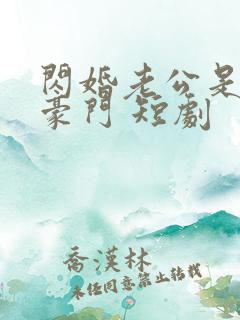 閃婚老公是
豪門 短劇
喬漢林
未經同意禁止轉載